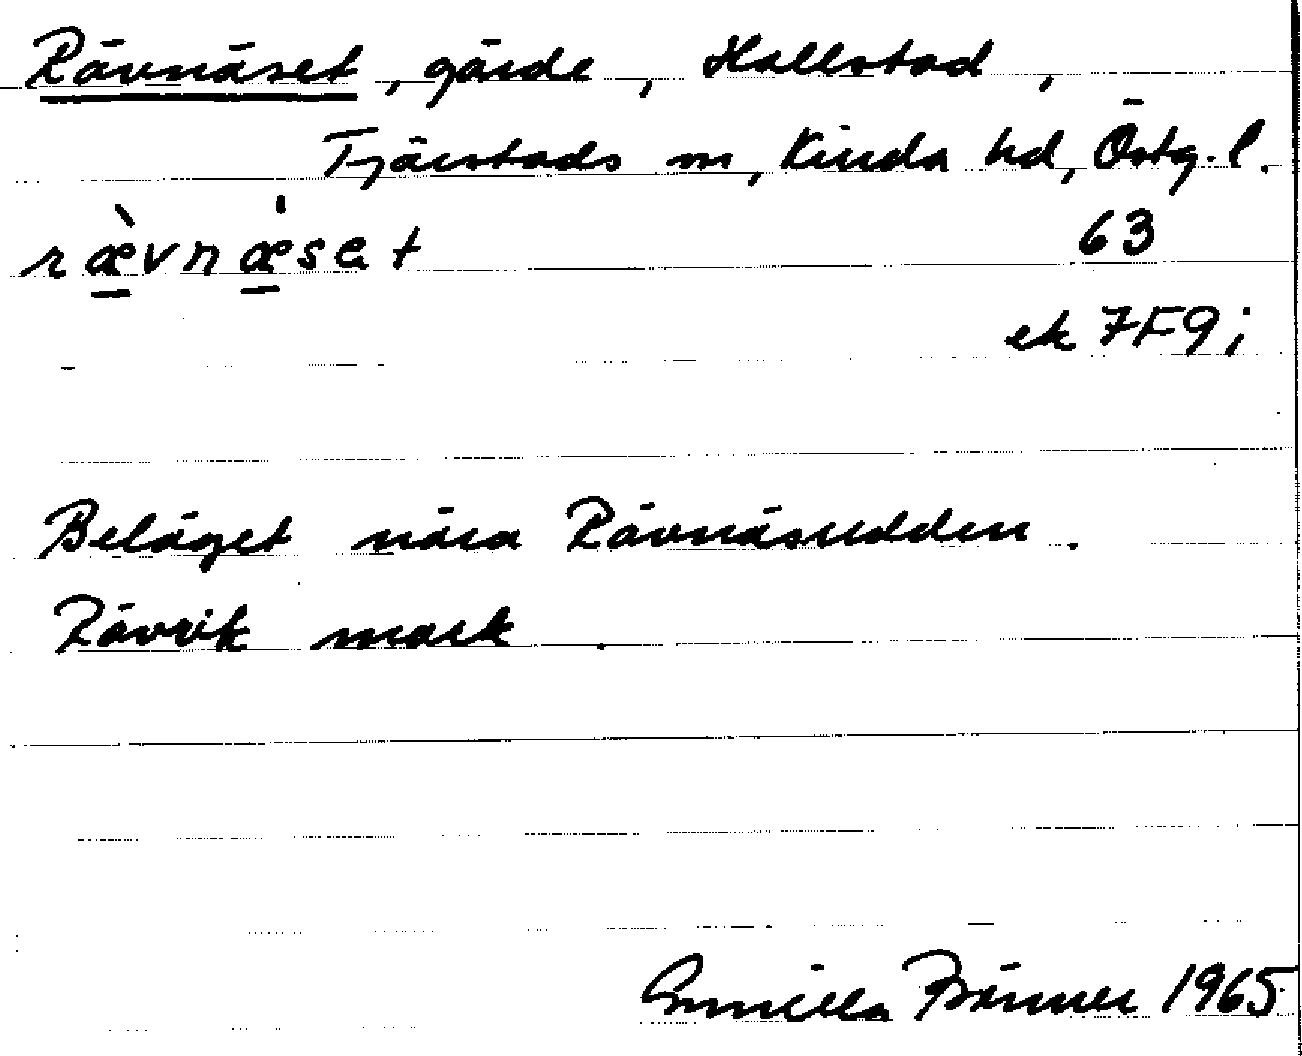 Rävnäset, gärde, Hallstad,
Tjärstads sn, Kinda hd, Östg. l.
ræ̀vnǽset 63
ek 7F9i
Beläget nära Rävnäsudden.
Rävrik mark.
Gunilla Brönner 1965